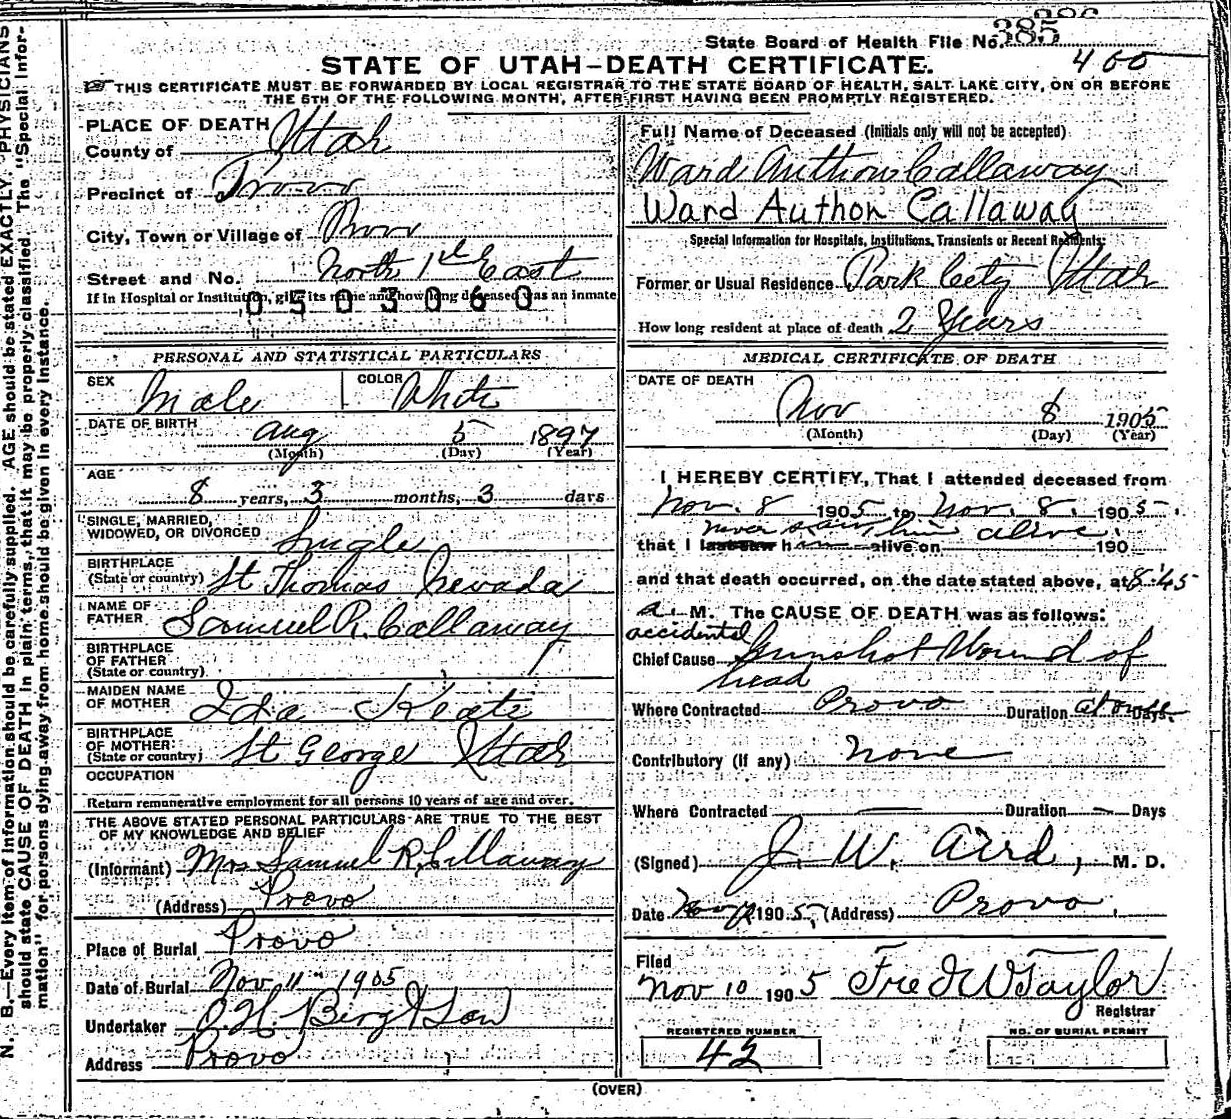 State Board of Health File No. 385
386
400
STATE OF UTAH—DEATH CERTIFICATE.
THIS CERTIFICATE MUST BE FORWARDED BY LOCAL REGISTRAR TO THE STATE BOARD OF HEALTH, SALT LAKE CITY, ON OR BEFORE
THE 5TH OF THE FOLLOWING MONTH, AFTER FIRST HAVING BEEN PROMPTLY REGISTERED.
PLACE OF DEATH
County of Utah
Precinct of Provo
City, Town or Village of Provo
Street and No. North 1st East
If in Hospital or Institution, give its name and how long deceased was an inmate
0503060
PERSONAL AND STATISTICAL PARTICULARS
SEX Male COLOR White
DATE OF BIRTH Aug 5 1897
(Month) (Day) (Year)
AGE
8 years, 3 months, 3 days
SINGLE, MARRIED,
WIDOWED, OR DIVORCED Single
BIRTHPLACE
(State or country) St Thomas Nevada
NAME OF
FATHER Samuel R. Callaway
BIRTHPLACE
OF FATHER
(State or country)
MAIDEN NAME
OF MOTHER Ida Keate
BIRTHPLACE
OF MOTHER
(State or country) St George Utah
OCCUPATION
Return remunerative employment for all persons 10 years of age and over.
THE ABOVE STATED PERSONAL PARTICULARS ARE TRUE TO THE BEST
OF MY KNOWLEDGE AND BELIEF
(Informant) Mrs Samuel R. Callaway
(Address) Provo
Place of Burial Provo
Date of Burial Nov 11 1905
Undertaker O. H. Berg & Son
Address Provo
Full Name of Deceased (Initials only will not be accepted)
Ward Authon Callaway
Ward Authon Callaway
Special Information for Hospitals, Institutions, Transients or Recent Residents:
Former or Usual Residence Park City Utah
How long resident at place of death 2 Years
MEDICAL CERTIFICATE OF DEATH
DATE OF DEATH
Nov 8 1905
(Month) (Day) (Year)
I HEREBY CERTIFY, That I attended deceased from
Nov. 8 1905 to Nov. 8, 1905.
never saw him alive.
that I last saw h alive on 190
and that death occurred, on the date stated above, at 8:45
a. M. The CAUSE OF DEATH was as follows:
accidental
Chief Cause Gunshot Wound of
head
Where Contracted Provo Duration at once Days
Contributory (if any) none
Where Contracted Duration Days
(Signed) J. W. Aird, M. D.
Date Nov 190 5, (Address) Provo.
Filed
Nov 10 190 5 Fred W Taylor
Registrar
REGISTERED NUMBER
42
NO. OF BURIAL PERMIT
(OVER)
N. B.—Every item of information should be carefully supplied. AGE should be stated EXACTLY. PHYSICIANS
should state CAUSE OF DEATH in plain terms, that it may be properly classified. The "Special Infor-
mation" for persons dying away from home should be given in every instance.